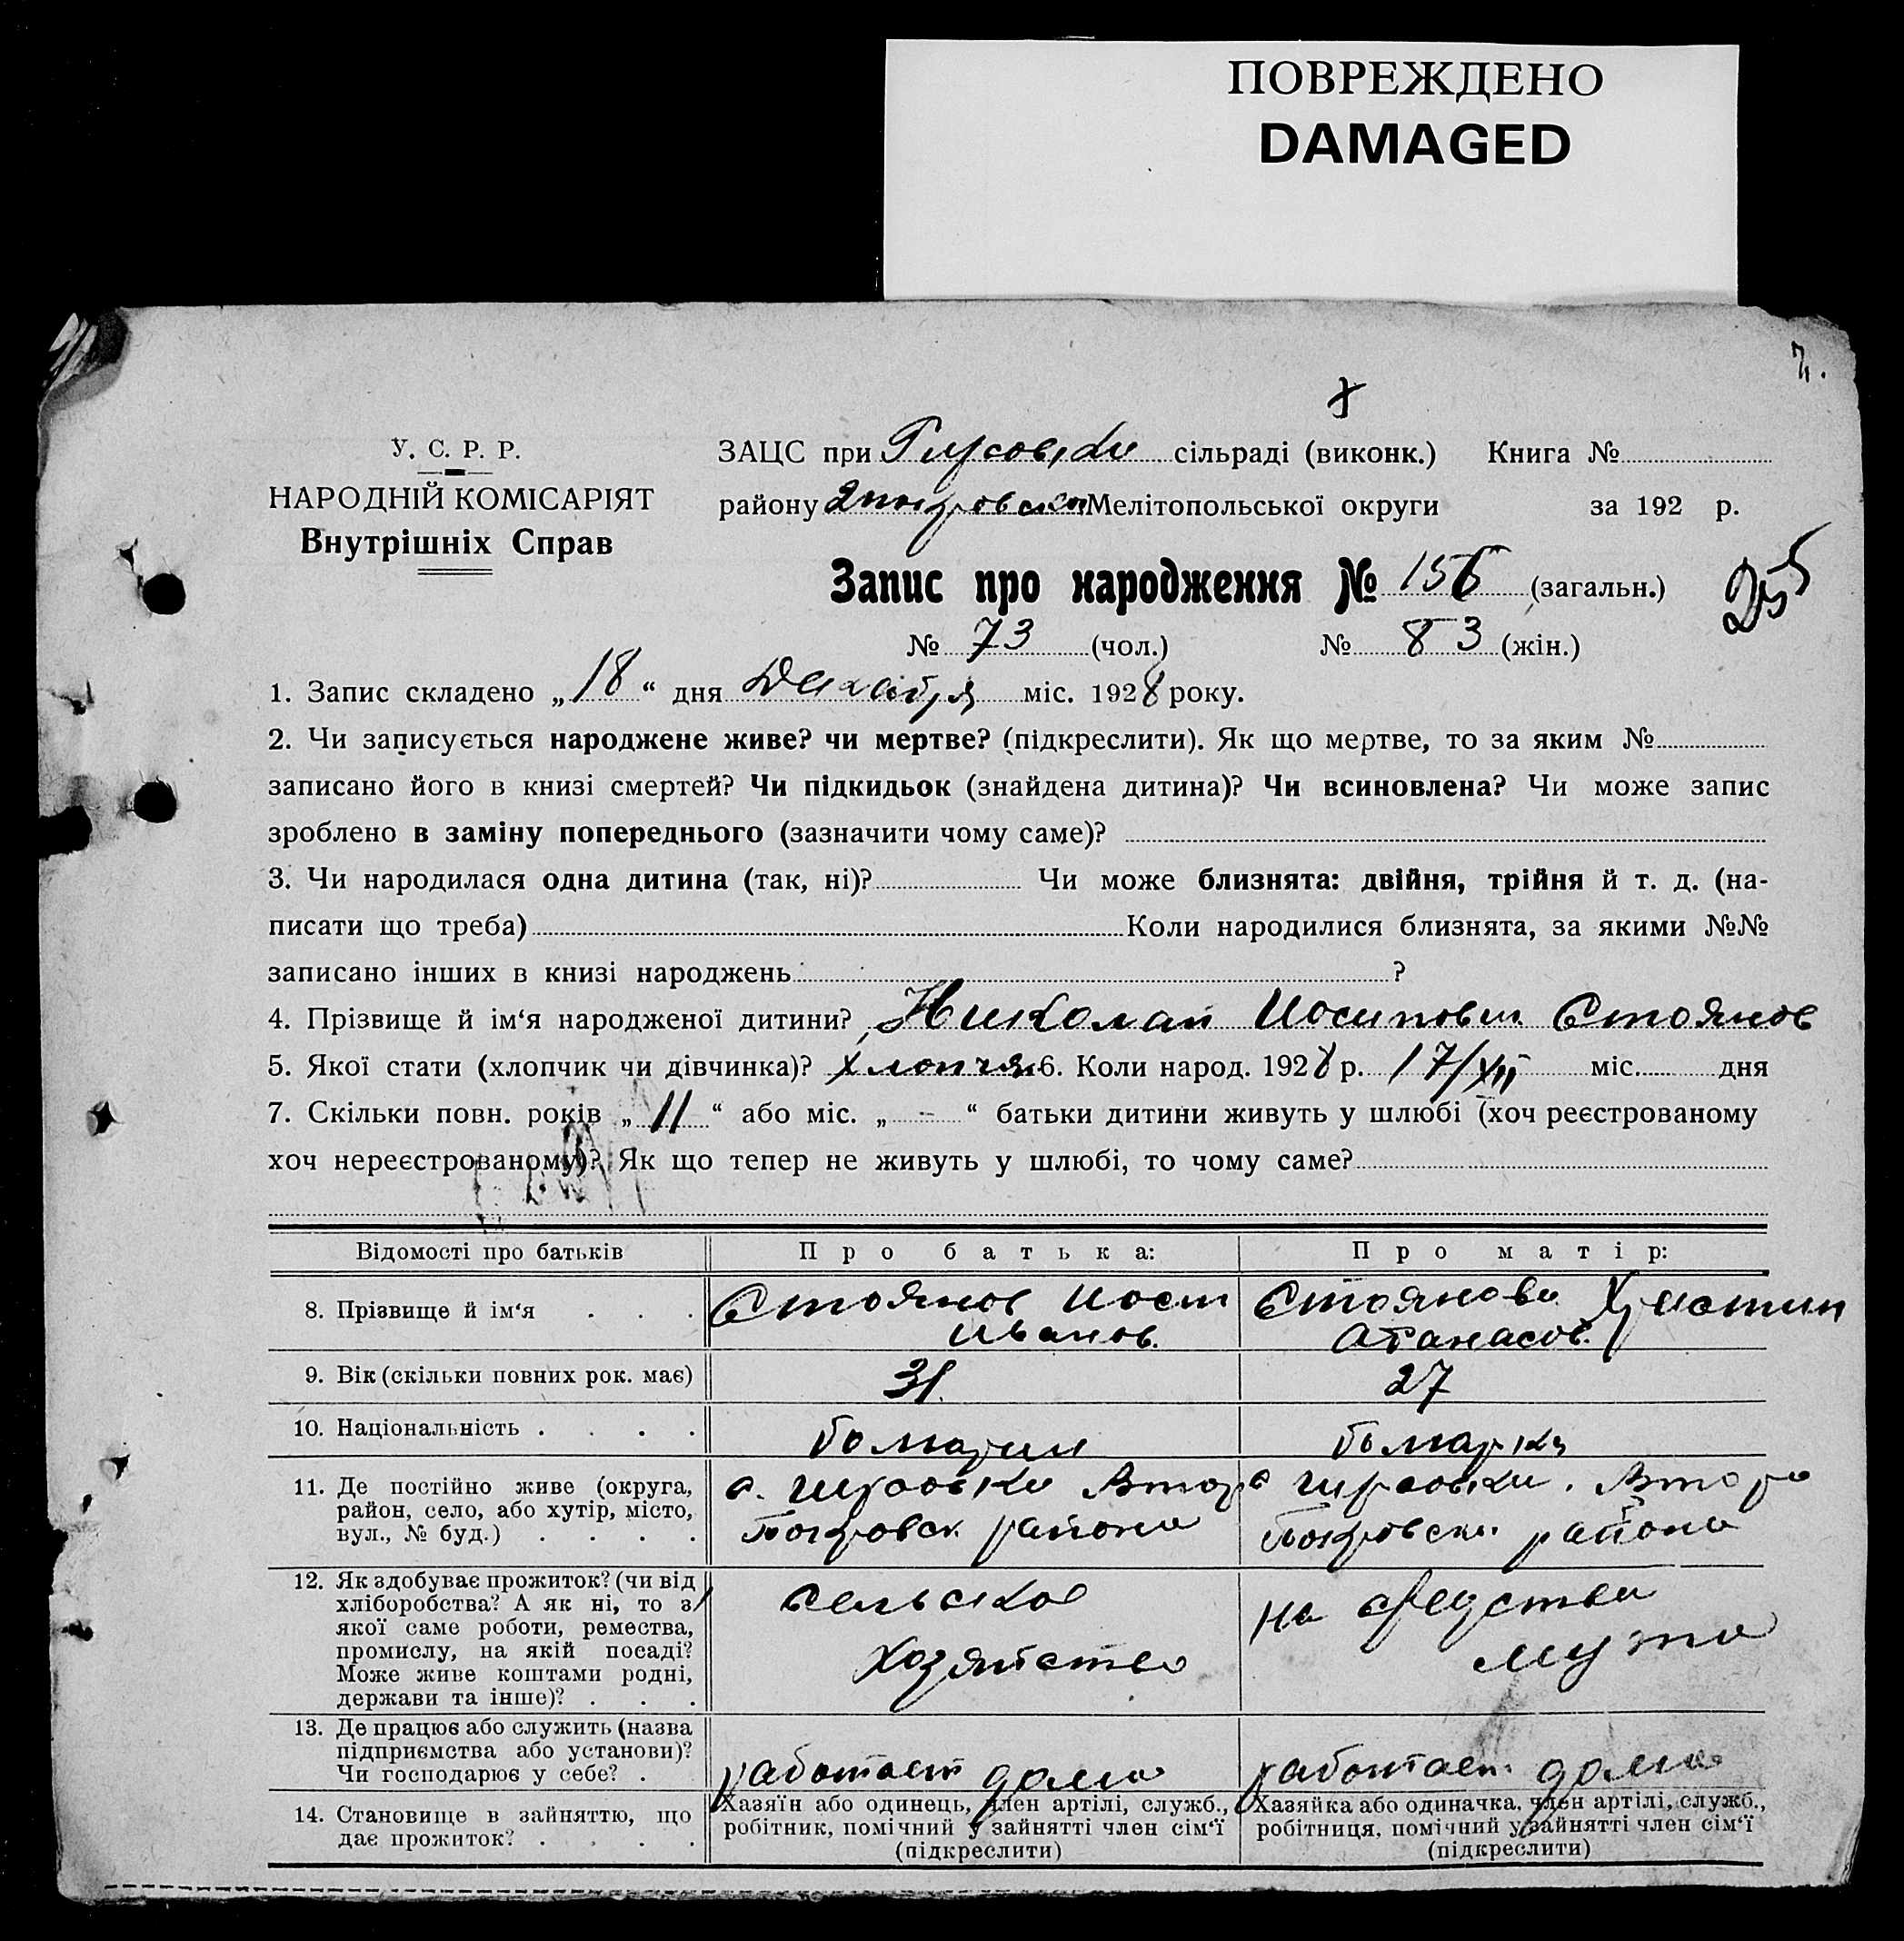 ПОВРЕЖДЕНО
DAMAGED
У. С. Р. Р.
НАРОДНІЙ КОМІСАРІЯТ
Внутрішніх Справ
ЗАЦС при сільраді (виконк.) Книга №
району Мелітопольської округи за 192 р.
Запис про народження № 156 (загальн.)
255
№ 73 (чол.) № 83 (жін.)
1. Запис складено „18“ дня Декабря міс. 1928 року.
2. Чи записується народжене живе? чи мертве? (підкреслити). Як що мертве, то за яким №
записано його в книзі смертей? Чи підкидьок (знайдена дитина)? Чи всиновлена? Чи може запис
зроблено в заміну попереднього (зазначити чому саме)?
3. Чи народилася одна дитина (так, ні)? Чи може близнята: двійня, трійня й т. д. (на-
писати що треба) Коли народилися близнята, за якими №№
записано інших в книзі народжень ?
4. Прізвище й ім‘я народженої дитини? Николай Иосипович Стоянов
5. Якої стати (хлопчик чи дівчинка)? 6. Коли народ. 1928 р. 17/XII міс. дня
7. Скільки повн. років „11“ або міс. „-“ батьки дитини живуть у шлюбі (хоч реєстрованому
хоч нереєстрованому)? Як що тепер не живуть у шлюбі, то чому саме?
Відомості про батьків Про батька: Про матір:
8. Прізвище й ім‘я . . . Стоянов Иосип Иванов. Стоянова Христин Атанасов.
9. Вік (скільки повних рок. має) 31. 27
10. Національність . . . . болгарин болгарка
11. Де постійно живе (округа,
район, село, або хутір, місто,
вул., № буд.) . . . .
с. Гирсовка Втор
Покровск района
с Гирсовка. Второ
Покровск. района
12. Як здобуває прожиток? (чи від
хліборобства? А як ні, то з
якої саме роботи, ремества,
промислу, на якій посаді?
Може живе коштами родні,
держави та інше)? . . .
сельское
хозяйство
на средства
мужа
13. Де працює або служить (назва
підприємства або установи)?
Чи господарює у себе? .
работает дома
работает дома
14. Становище в зайняттю, що
дає прожиток? . . . .
Хазяїн або одинець, член артілі, служб.,
робітник, помічний у зайнятті член сім‘ї
(підкреслити)
Хазяйка або одиначка, член артілі, служб.,
робітниця, помічний у зайнятті член сім‘ї
(підкреслити)